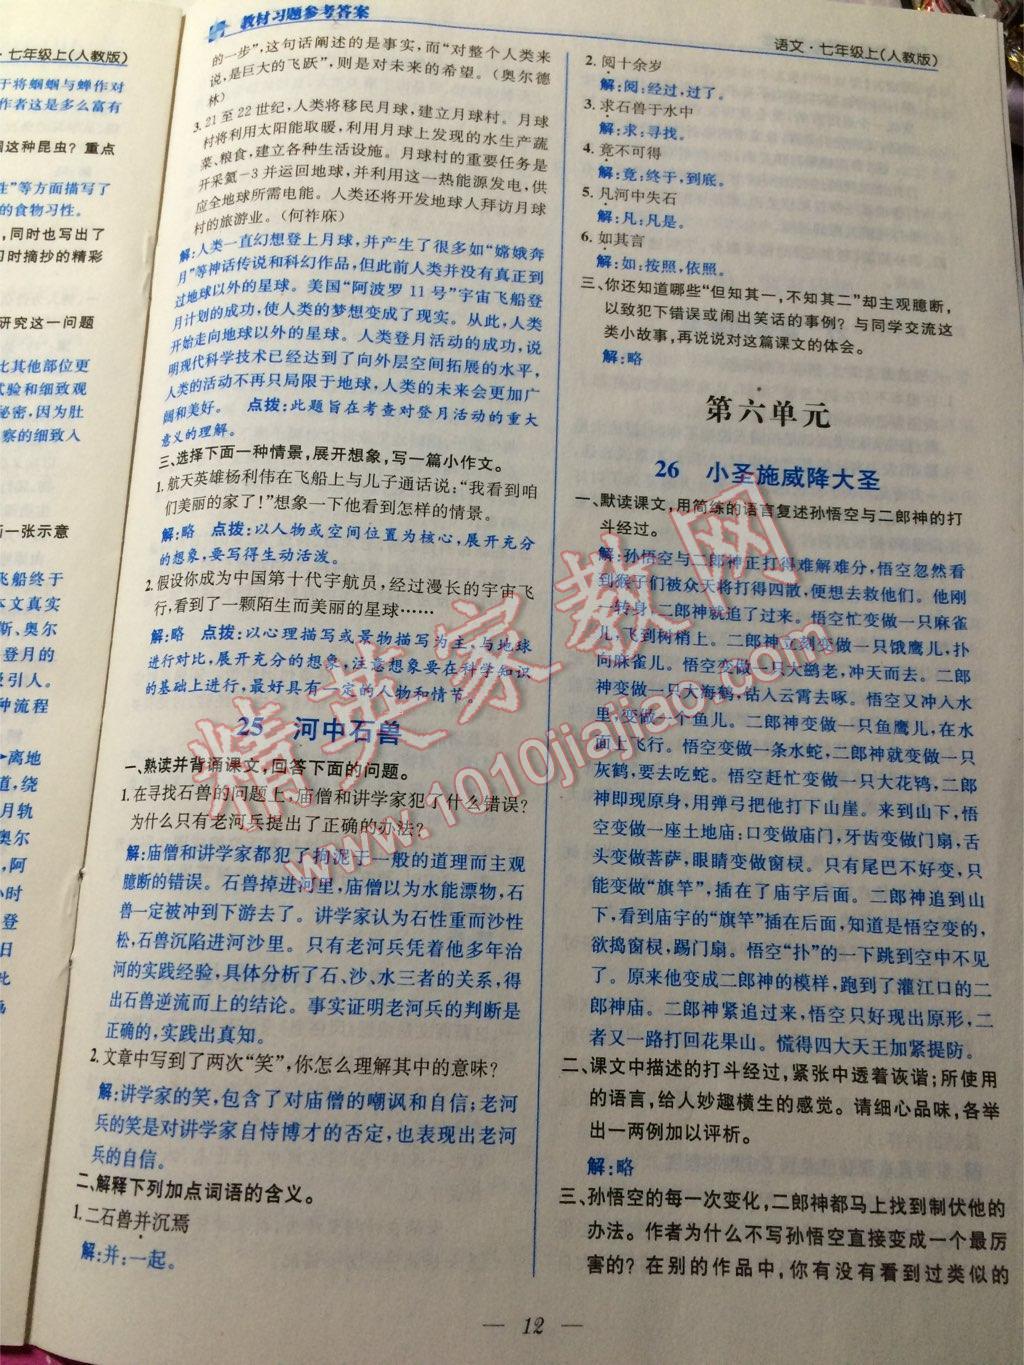 ·七年级上(人教版)
于将蝈蝈与蝉作对
作者这是多么富有
这种昆虫？重点
生”等方面描写了
的食物习性。
,同时也写出了
习时摘抄的精彩
研究这一问题
比其他部位更
试验和细致观
秘密,因为肚
察的细致入
一张示意
飞船终于
本文真实
斯、奥尔
登月的
吸引人。
种流程
离地
道,绕
月轨
奥尔
,阿
小时
登
日
此
教材习题参考答案
的一步”,这句话阐述的是事实,而“对整个人类来
说,是巨大的飞跃”,则是对未来的希望。(奥尔德
林)
3.21至22世纪,人类将移民月球,建立月球村。月球
村将利用太阳能取暖,利用月球上发现的水生产蔬
菜、粮食,建立各种生活设施。月球村的重要任务是
开采氦-3并运回地球,并利用这一热能源发电,供
应全地球所需电能。人类还将开发地球人拜访月球
村的旅游业。(何祚庥)
解:人类一直幻想登上月球,并产生了很多如“嫦娥奔
月”等神话传说和科幻作品,但此前人类并没有真正到
过地球以外的星球。美国“阿波罗11号”宇宙飞船登
月计划的成功,使人类的梦想变成了现实。从此,人类
开始走向地球以外的星球。人类登月活动的成功,说
明现代科学技术已经达到了向外层空间拓展的水平,
人类的活动不再只局限于地球,人类的未来会更加广
阔和美好。 点拨:此题旨在考查对登月活动的重大
意义的理解。
三、选择下面一种情景,展开想象,写一篇小作文。
1.航天英雄杨利伟在飞船上与儿子通话说:“我看到咱
们美丽的家了!”想象一下他看到怎样的情景。
解:略 点拨:以人物或空间位置为核心,展开充分
的想象,要写得生动活泼。
2.假设你成为中国第十代宇航员,经过漫长的宇宙飞
行,看到了一颗陌生而美丽的星球……
解:略 点拨:以心理描写或景物描写为主,与地球
进行对比,展开充分的想象,注意想象要在科学知识
的基础上进行,最好具有一定的人物和情节。
25 河中石兽
一、熟读并背诵课文,回答下面的问题。
1.在寻找石兽的问题上,庙僧和讲学家犯了什么错误?
为什么只有老河兵提出了正确的办法?
解:庙僧和讲学家都犯了拘泥于一般的道理而主观
臆断的错误。石兽掉进河里,庙僧以为水能漂物,石
兽一定被冲到下游去了。讲学家认为石性重而沙性
松,石兽沉陷进河沙里。只有老河兵凭着他多年治
河的实践经验,具体分析了石、沙、水三者的关系,得
出石兽逆流而上的结论。事实证明老河兵的判断是
正确的,实践出真知。
2.文章中写到了两次“笑”,你怎么理解其中的意味?
解:讲学家的笑,包含了对庙僧的嘲讽和自信;老河
兵的笑是对讲学家自恃博才的否定,也表现出老河
兵的自信。
二、解释下列加点词语的含义。
1.二石兽并沉焉
解:并:一起。
语文·七年级上(人教版)
2.阅十余岁
解:阅:经过,过了。
3.求石兽于水中
解:求:寻找。
4.竟不可得
解:竟:终于,到底。
5.凡河中失石
解:凡:凡是。
6.如其言
解:如:按照,依照。
三、你还知道哪些“但知其一,不知其二”却主观臆断,
以致犯下错误或闹出笑话的事例?与同学交流这
类小故事,再说说对这篇课文的体会。
解:略
第六单元
26 小圣施威降大圣
一、默读课文,用简练的语言复述孙悟空与二郎神的打
斗经过。
解:孙悟空与二郎神正打得难解难分,悟空忽然看
到猴子们被众天将打得四散,便想去救他们。他刚
一转身,二郎神就追了过来。悟空忙变做一只麻雀
儿,飞到树梢上。二郎神立刻变做一只饿鹰儿,扑
向麻雀儿。悟空变做一只大鹚老,冲天而去。二郎
神变做一只大海鹤,钻入云霄去啄。悟空又冲入水
里,变做一个鱼儿。二郎神变做一只鱼鹰儿,在水
面上飞行。悟空变做一条水蛇,二郎神就变做一只
灰鹤,要去吃蛇。悟空赶忙变做一只大花鸨,二郎
神即现原身,用弹弓把他打下山崖。来到山下,悟
空变做一座土地庙:口变做庙门,牙齿变做门扇,舌
头变做菩萨,眼睛变做窗棂。只有尾巴不好变,只
能变做“旗竿”,插在了庙宇后面。二郎神追到山
下,看到庙宇的“旗竿”插在后面,知道是悟空变的,
欲捣窗棂,踢门扇。悟空“扑”的一下跳到空中不见
了。原来他变成二郎神的模样,跑到了灌江口的二
郎神庙。二郎神紧追过来,悟空只好现出原形,二
者又一路打回花果山。慌得四大天王加紧提防。
二、课文中描述的打斗经过,紧张中透着诙谐;所使用
的语言,给人妙趣横生的感觉。请细心品味,各举
出一两例加以评析。
解:略
三、孙悟空的每一次变化,二郎神都马上找到制伏他的
办法。作者为什么不写孙悟空直接变成一个最厉
害的?在别的作品中,你有没有看到过类似的
— 12 —
精英家教网
www.1010jiajiao.com